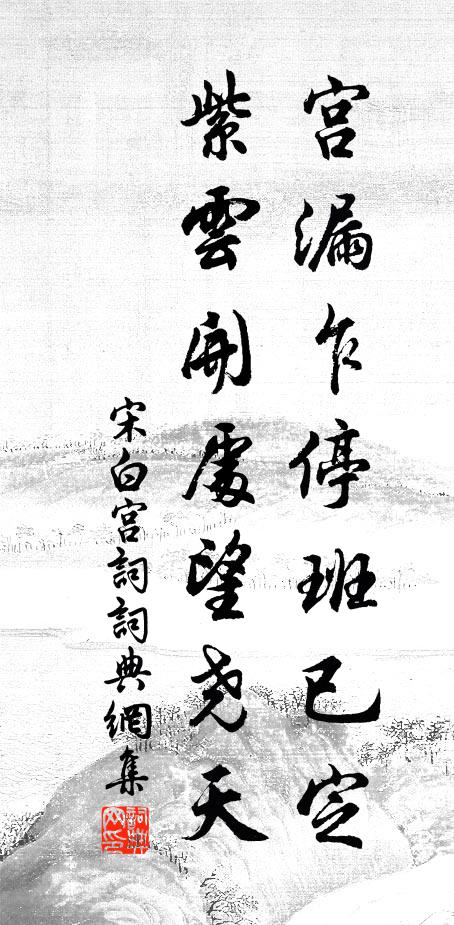 宮漏乍停班已定
紫雲開處望堯天
宋白宮詞詞典網集